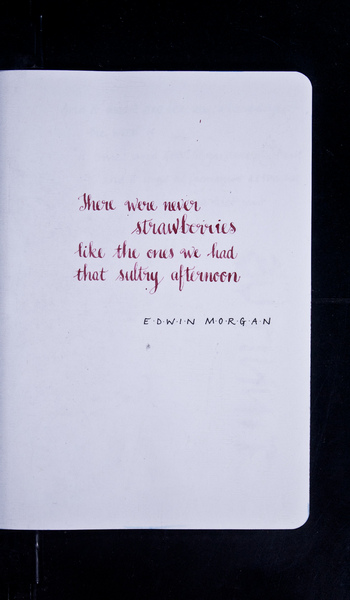 There were never
strawberries
like the ones we had
that sultry afternoon
E·D·W·I·N M·O·R·G·A·N